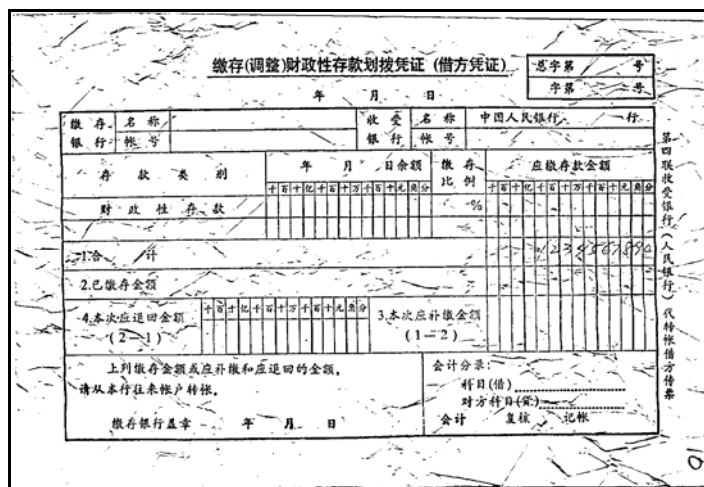 缴存(调整)财政性存款划拨凭证 (借方凭证)
总字第 号
字第 号
年 月 日
缴存银行 名称 收受银行 名称 中国人民银行 行
帐号 帐号
存款类别 年 月 日余额 缴存比例 应缴存款金额
千百十亿千百十万千百十元角分 千百十亿千百十万千百十元角分
财政性存款 %
1.合 计 1234567890
2.已缴存金额
4.本次应退回金额 千百十亿千百十万千百十元角分 3.本次应补缴金额
(2—1) (1—2)
上列缴存金额或应补缴和应退回的金额,
请从本行往来帐户转帐。
缴存银行盖章 年 月 日
会计分录:
科目(借)
对方科目(贷)
会计 复核 记帐
第四联收受银行(人民银行)代转帐借方传票